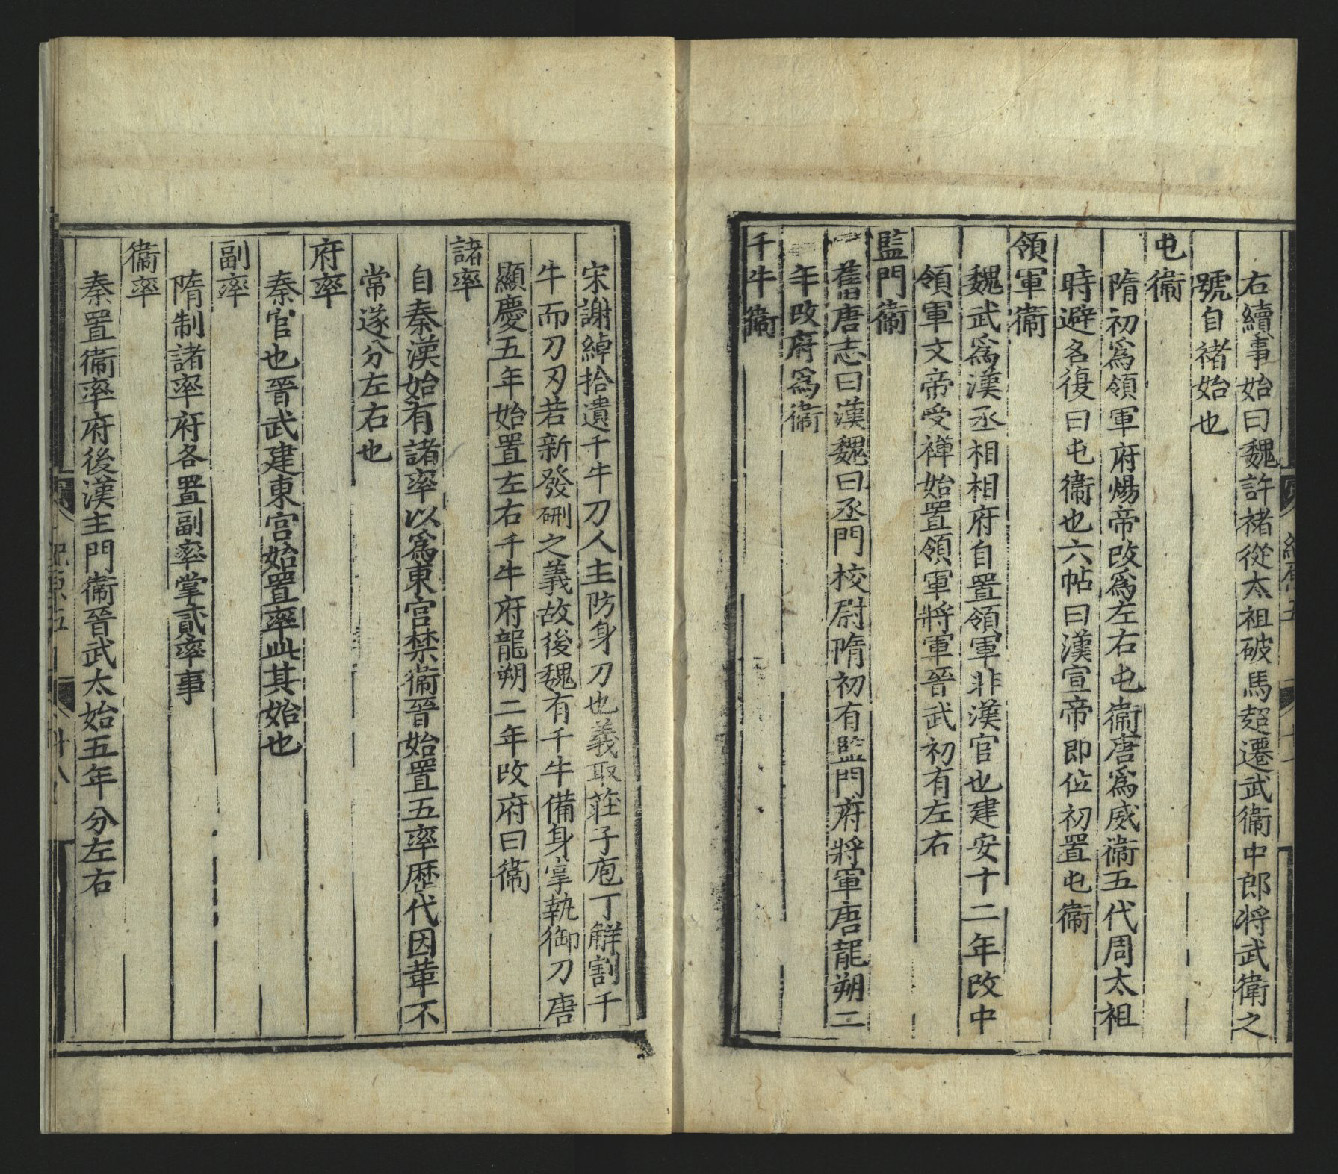 右續事始曰魏許褚從太祖破馬超遷武衛中郎將武衛之
號自褚始也
屯衛
隋初爲領軍府煬帝改爲左右屯衛唐爲威衛五代周太祖
時避名復曰屯衛也六帖曰漢宣帝即位初置屯衛
領軍衛
魏武爲漢丞相相府自置領軍非漢官也建安十二年改中
領軍文帝受禪始置領軍將軍晉武初有左右
監門衛
舊唐志曰漢魏曰丞門校尉隋初有監門府將軍唐龍朔二
年改府爲衛
千牛衛
宋謝綽拾遺千牛刀人主防身刀也義取莊子庖丁解割千
牛而刀刃若新發硎之義故後魏有千牛備身掌執御刀唐
顯慶五年始置左右千牛府龍朔二年改府曰衛
諸率
自秦漢始有諸率以爲東宫禁衛晉始置五率歷代因革不
常遂分左右也
府率
秦官也晉武建東宫始置率此其始也
副率
隋制諸率府各置副率掌貳率事
衛率
秦置衛率府後漢主門衛晉武太始五年分左右